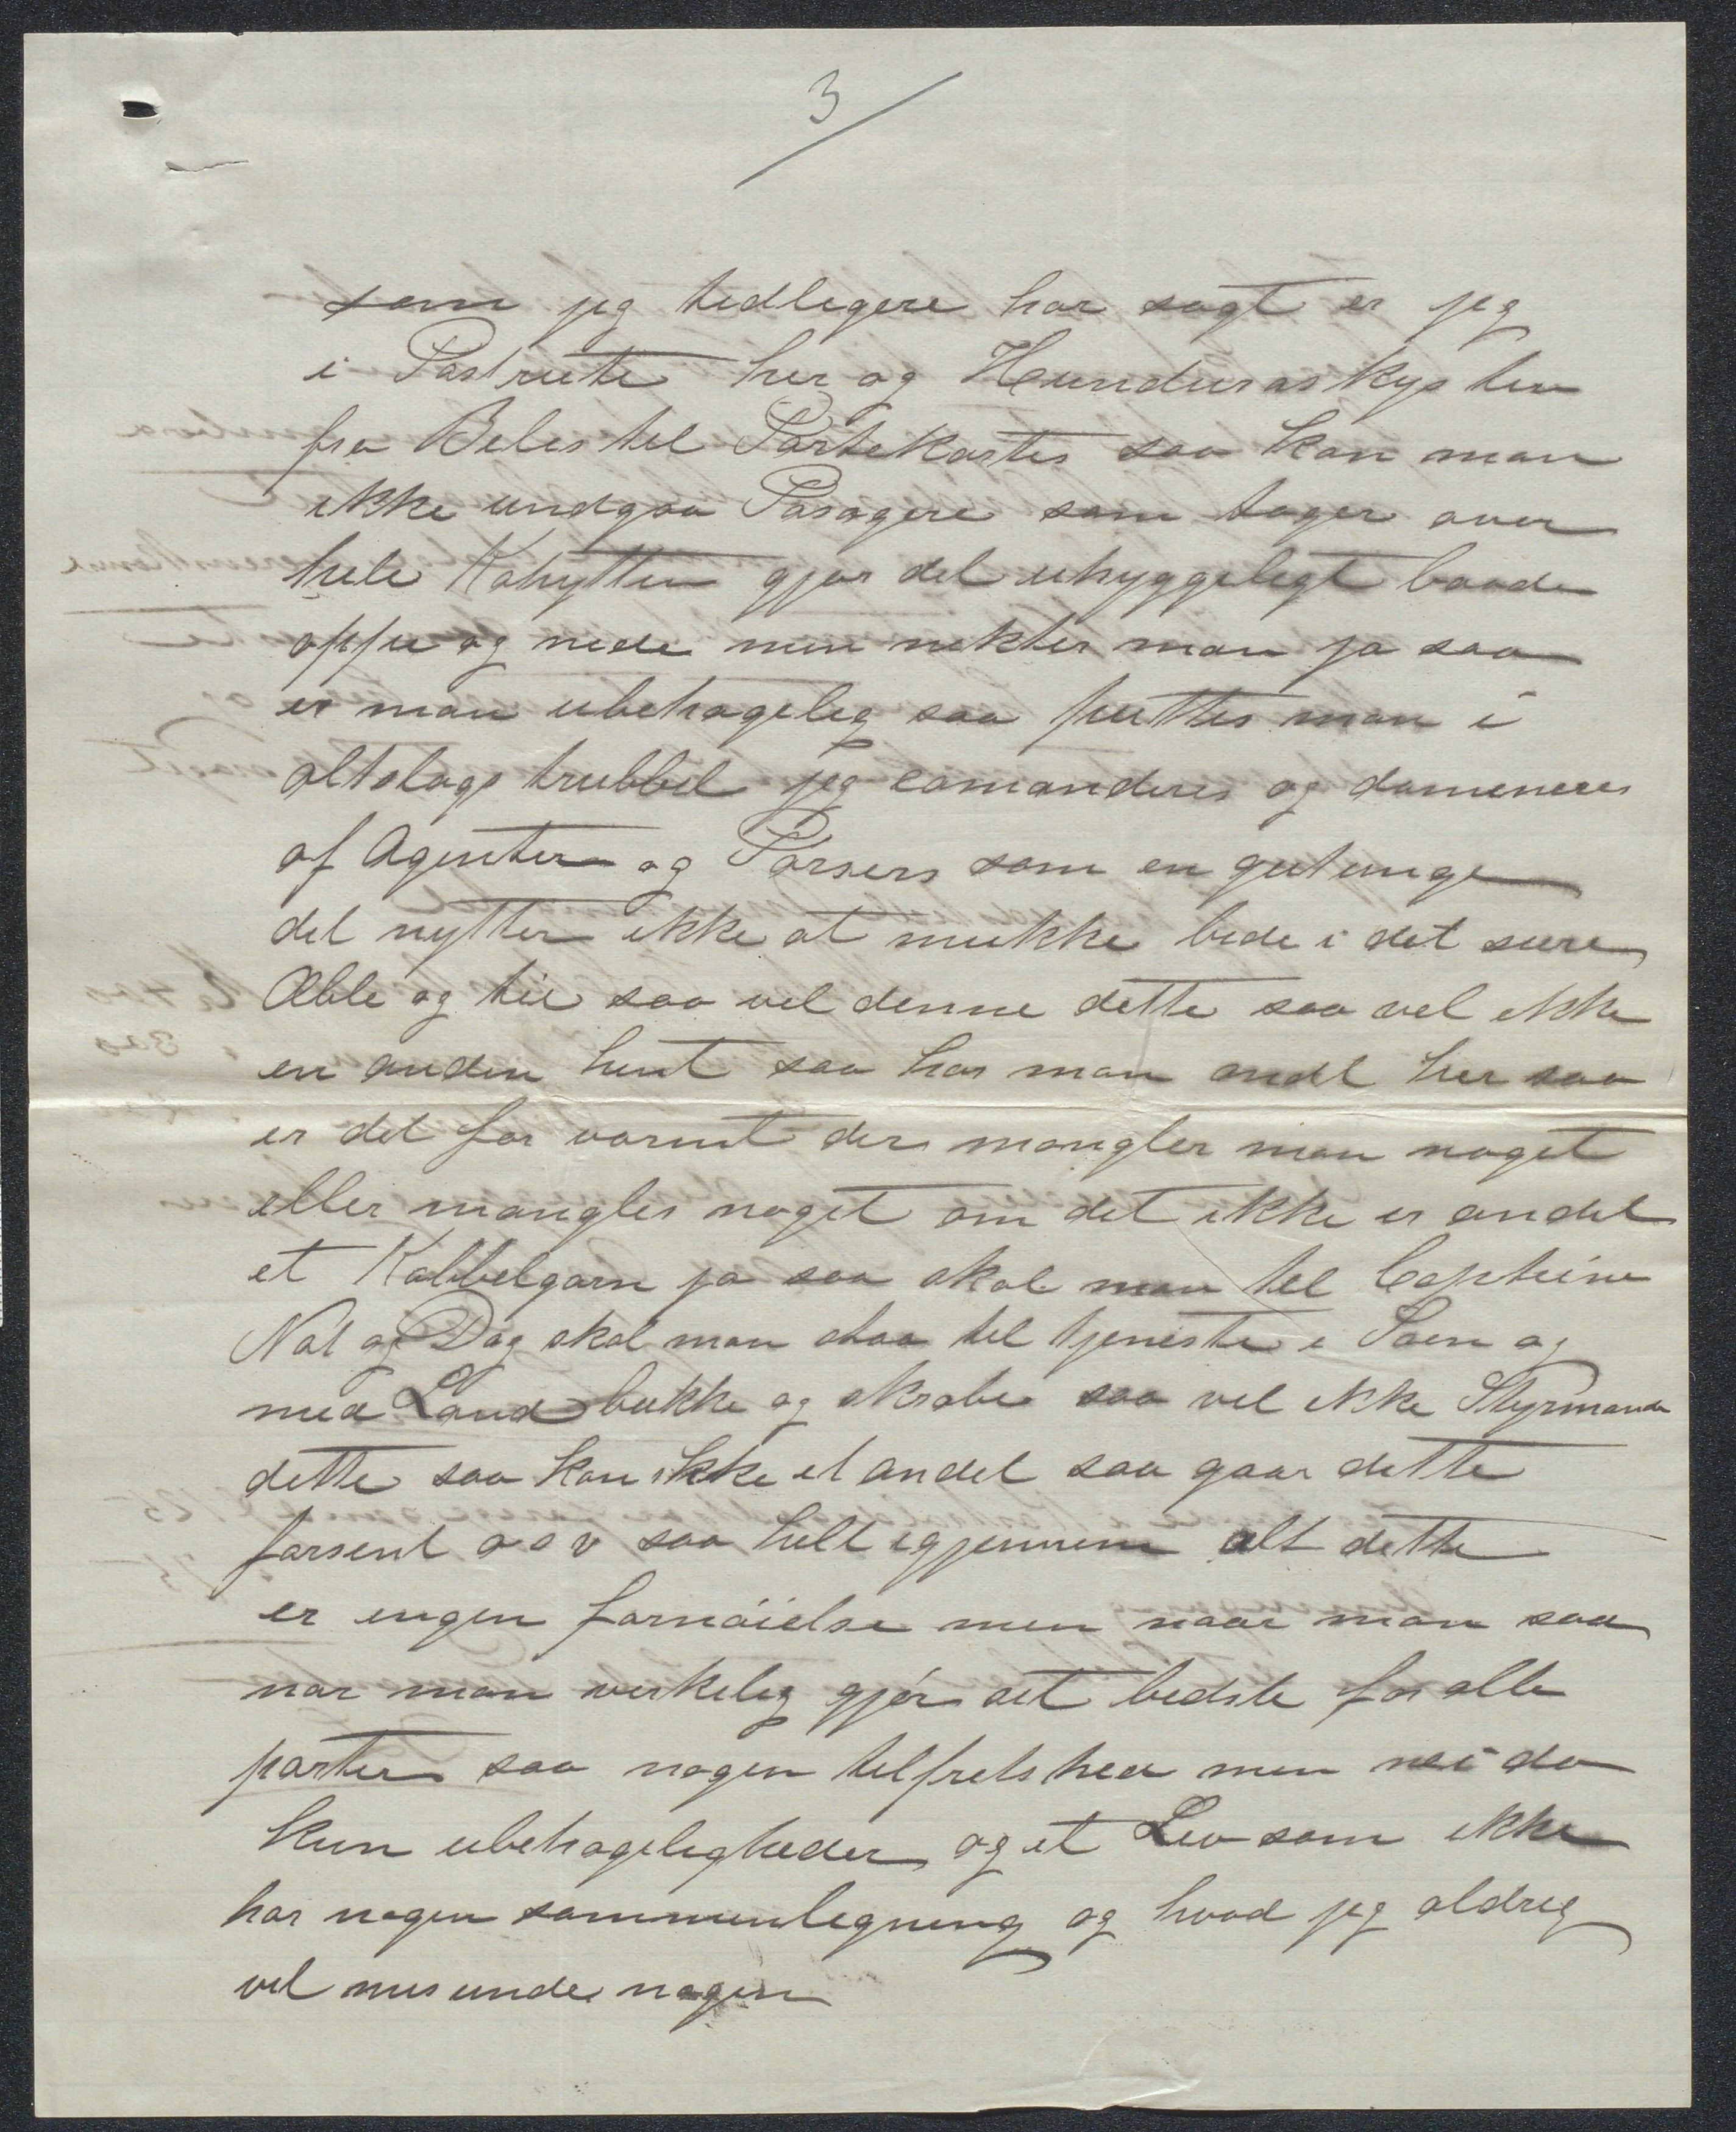 3
som jeg tidligere har sagt er jeg
i Postrute her og Hunduraskysten
fra Beles til Portekortes saa kan man
ikke undgaa Pasagere som tager over
hele Kahytten gjør det uhyggeligt baade
oppe og nede men nekter man ja saa
er man ubehagelig saa puttes man i
altslags trubbel jeg comanderes og domeneres
af Agenter og Porsers som en gutunge
det nytter ikke at mukke bede i det sure
Æble og tie saa vel denne dette saa vel ikke
en anden hent saa har man ondt her saa
er det for varmt der mangler man noget
eller mangles noget om det ikke er andet
et Kabbelgarn ja saa skal man til Capteine
Nat og Dag skal man staa til tjeneste i Soen og
med Land bukke og skrabe saa vel ikke Styrmande
dette saa kan ikke et andet saa gaar dette
forsent o s v saa helt igjennem alt dette
er ingen fornöielse men naar man saa
nar man verkelig gjör det bedste for alle
parter saa nogen tilfretshed men nei da
kun ubehageligheder og et Lev som ikke
har nogen sammenlegning og hvad jeg aldreg
vil mesunde nogen